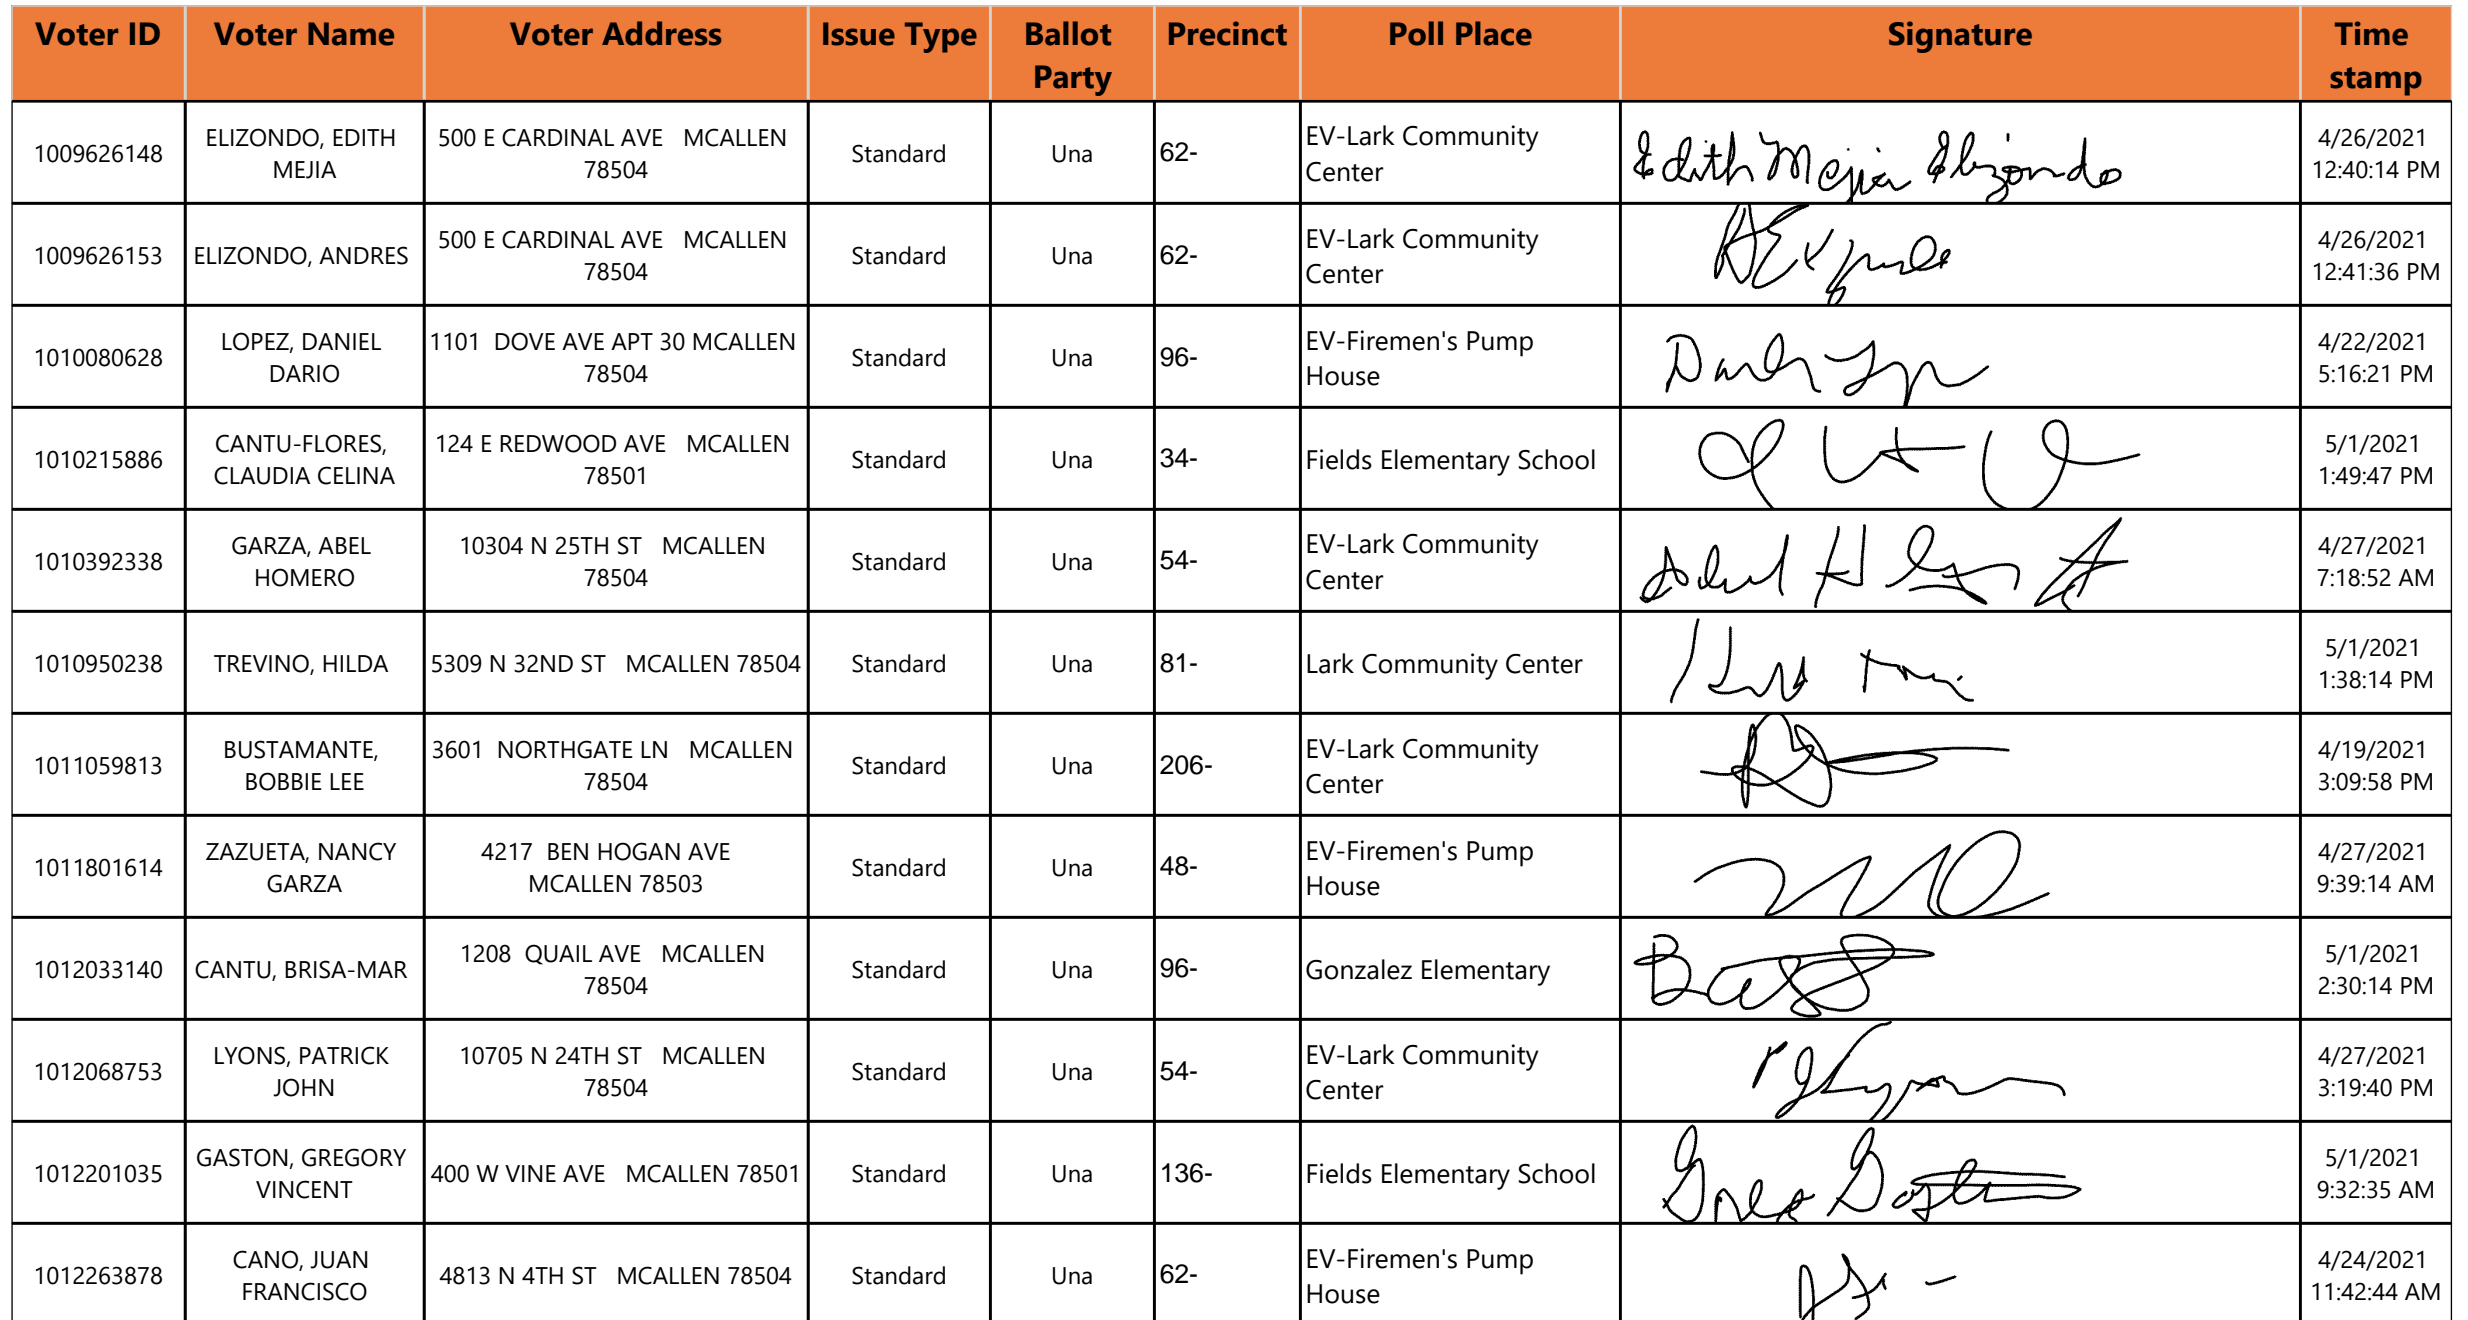 Voter ID Voter Name Voter Address Issue Type Ballot Party Precinct Poll Place Signature Time stamp
1009626148 ELIZONDO, EDITH MEJIA 500 E CARDINAL AVE MCALLEN 78504 Standard Una 62- EV-Lark Community Center Edith Mejia Elizondo 4/26/2021 12:40:14 PM
1009626153 ELIZONDO, ANDRES 500 E CARDINAL AVE MCALLEN 78504 Standard Una 62- EV-Lark Community Center 4/26/2021 12:41:36 PM
1010080628 LOPEZ, DANIEL DARIO 1101 DOVE AVE APT 30 MCALLEN 78504 Standard Una 96- EV-Firemen's Pump House 4/22/2021 5:16:21 PM
1010215886 CANTU-FLORES, CLAUDIA CELINA 124 E REDWOOD AVE MCALLEN 78501 Standard Una 34- Fields Elementary School 5/1/2021 1:49:47 PM
1010392338 GARZA, ABEL HOMERO 10304 N 25TH ST MCALLEN 78504 Standard Una 54- EV-Lark Community Center 4/27/2021 7:18:52 AM
1010950238 TREVINO, HILDA 5309 N 32ND ST MCALLEN 78504 Standard Una 81- Lark Community Center 5/1/2021 1:38:14 PM
1011059813 BUSTAMANTE, BOBBIE LEE 3601 NORTHGATE LN MCALLEN 78504 Standard Una 206- EV-Lark Community Center 4/19/2021 3:09:58 PM
1011801614 ZAZUETA, NANCY GARZA 4217 BEN HOGAN AVE MCALLEN 78503 Standard Una 48- EV-Firemen's Pump House 4/27/2021 9:39:14 AM
1012033140 CANTU, BRISA-MAR 1208 QUAIL AVE MCALLEN 78504 Standard Una 96- Gonzalez Elementary 5/1/2021 2:30:14 PM
1012068753 LYONS, PATRICK JOHN 10705 N 24TH ST MCALLEN 78504 Standard Una 54- EV-Lark Community Center 4/27/2021 3:19:40 PM
1012201035 GASTON, GREGORY VINCENT 400 W VINE AVE MCALLEN 78501 Standard Una 136- Fields Elementary School Greg Gaston 5/1/2021 9:32:35 AM
1012263878 CANO, JUAN FRANCISCO 4813 N 4TH ST MCALLEN 78504 Standard Una 62- EV-Firemen's Pump House 4/24/2021 11:42:44 AM